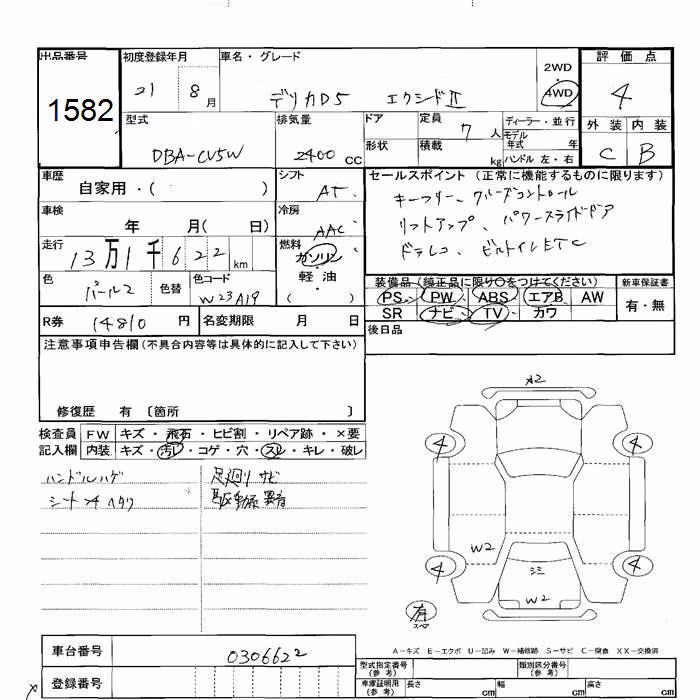 出品番号 初度登録年月 車名・グレード 2WD 評価点
1582 21 8月 デリカD5 エクシードⅡ 4WD 4
型式 排気量 ドア 定員 7人 ディーラー・並行 外装 内装
DBA-CV5W 2400cc 形状 積載 kg モデル年式 年 C B
ハンドル 左・右
車歴 シフト セールスポイント (正常に機能するものに限ります)
自家用・( ) AT キーフリー、クルーズコントロール
車検 冷房 リフトアップ、パワースライドドア
年 月( 日) AAC ドラレコ、ビルトインETC
走行 燃料
13万1千622km ガソリン
色 色替 色コード 軽・油 装備品 (純正品に限り○をつけてください) 新車保証書
パール2 W23A19 ( ) PS PW ABS エアB AW 有・無
R券 14810円 名変期限 月 日 SR ナビ TV カワ
後日品
注意事項申告欄(不具合内容等は具体的に記入して下さい)
修復歴 有 〔箇所 〕
A2
検査員 FW キズ・飛石・ヒビ割・リペア跡・×要
記入欄 内装 キズ・汚レ・コゲ・穴・スレ・キレ・破レ
4 4
ハンドルハゲ 足廻りサビ
シート ヘタリ 駆動系異音
W2
4 4
ミミ
W2
有
スペア
A-キズ E-エクボ U-凹み W-補修跡 S-サビ C-腐食 XX-交換済
車台番号 0306622 型式指定番号(参考) 類別区分番号(参考)
登録番号 車庫証明用(参考) 長さ cm 幅 cm 高さ cm